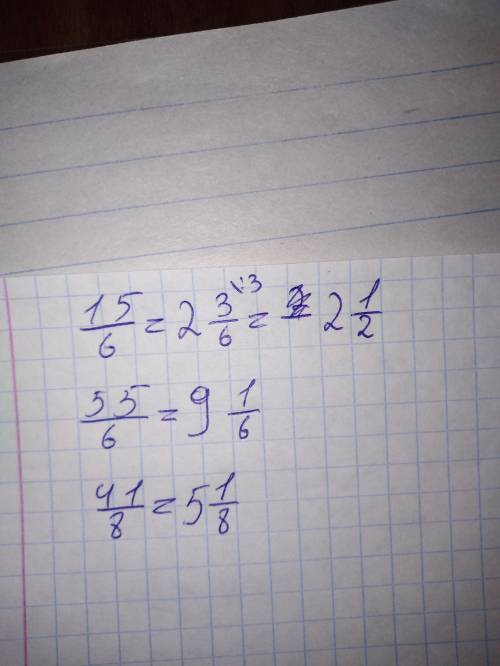 15/6 = 2 3/6 \:3 = 2 1/2
55/6 = 9 1/6
41/8 = 5 1/8